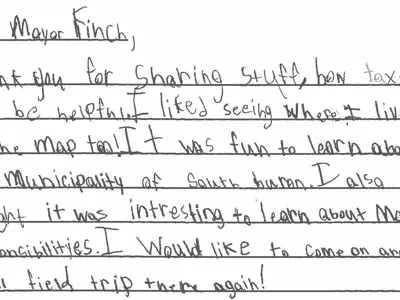 Mayor Finch,
nk you for sharing stuff, how tax
be helpful. I liked seeing where I liv
he map too! It was fun to learn abo
municipality of South huron. I also
ght it was intresting to learn about Ma
oncibilities. I would like to come on an
l field trip there again!